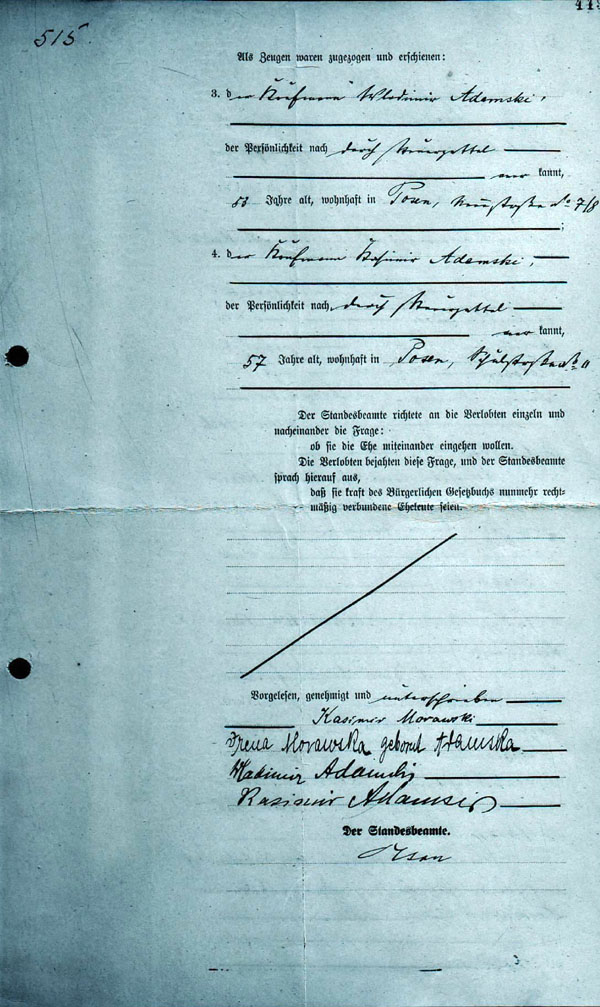 515.
Als Zeugen waren zugezogen und erschienen:
3. der Kaufmann Wlodimir Adamski,
der Persönlichkeit nach durch Steuerzettel
aner kannt,
53 Jahre alt, wohnhaft in Posen, No 7/8
;
4. der Kaufmann Kasimir Adamski,
der Persönlichkeit nach durch Steuerzettel
aner kannt,
57 Jahre alt, wohnhaft in Posen, Schulstraße No 11
Der Standesbeamte richtete an die Verlobten einzeln und
nacheinander die Frage:
ob sie die Ehe miteinander eingehen wollen.
Die Verlobten bejahten diese Frage, und der Standesbeamte
sprach hierauf aus,
daß sie kraft des Bürgerlichen Gesetzbuchs nunmehr recht-
mäßig verbundene Eheleute seien.
Vorgelesen, genehmigt und unterschrieben
Kasimir Morawski
Irena Morawska geborne Adamska
Wladimir Adamski
Kasimir Adamski
Der Standesbeamte.
3